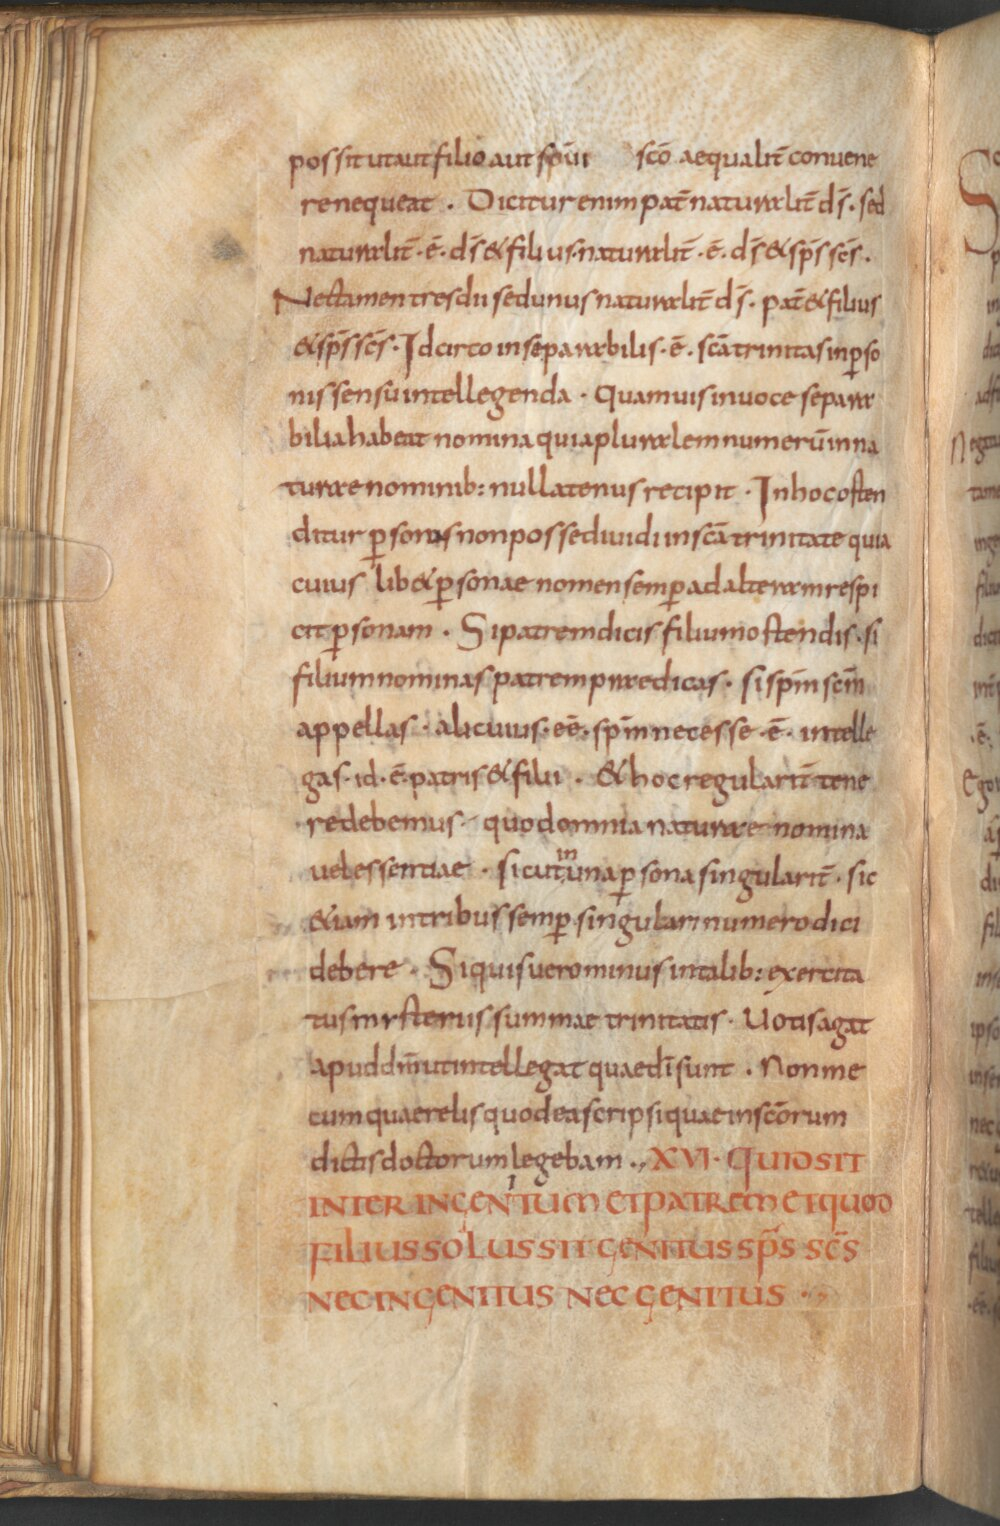 possit ut aut filio aut sp̄ui sc̄o aequalit̄ conuene
re nequeat . Dicitur enim pat̄ naturalit̄ d̄s . sed
naturalit̄ · ē · d̄s & filius . naturalit̄ · ē · d̄s & sp̄s sc̄s .
Nec tamen tres dii sed unus naturalit̄ d̄s . pat̄ & filius
& sp̄s sc̄s . Idcirco inseparabilis · ē . sc̄a trinitas in p̲so
nis sensu intellegenda · Quamuis in uoce separa
bilia habeat nomina quia pluralem numerū in na
turae nominib: nullatenus recipit · In hoc osten
ditur p̲sonas non posse diuidi in sc̄a trinitate quia
cuius lib& p̲sonae nomen semp̲ ad alteram respi
cit p̲sonam . Si patrem dicis filium ostendis . si
filium nominas patrem praedicas . si sp̄m sc̄m
appellas · alicuius · eē · sp̄m necesse · ē · intelle
gas · id · ē · patris & filii . & hoc regularit̄ tene
re debemus · quod omnia naturae nomina
uel essentiae · sicut in una p̲sona singularit̄ · sic
&iam in tribus semp̲ singulari numero dici
debere . Si quis uero minus in talib: exercita
tus mysteriis summae trinitatis · Uotis agat
apud dn̄m ut intellegat quae dī sunt . Non me
cum quaerelis quod ea scripsi quae in sc̄orum
dictis doctorum legebam ., XVI · QUID SIT
INTER INGENITUM ET PATREM ET QUOD
FILIUS SOLUS SIT GENITUS SP̄S SC̄S
NEC INGENITUS NEC GENITUS · ,